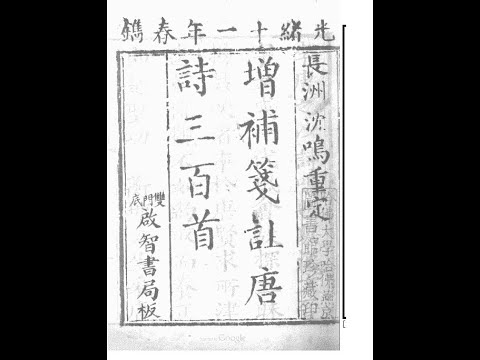 光緒十一年春鐫
長洲沈鳴重定
增補箋註唐
詩三百首
雙門底
啟智書局板
書館珍藏印
Google